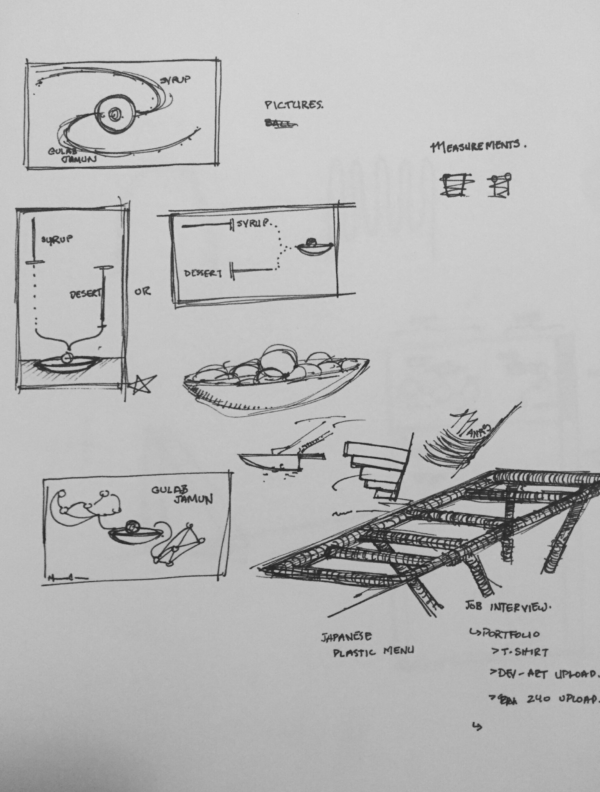 SYRUP
PICTURES.
BALL
GULAB
JAMUN
MEASUREMENTS.
SYRUP
DESERT
OR
SYRUP.
DESSERT
GULAB
JAMUN
JAPANESE
PLASTIC MENU
JOB INTERVIEW.
↳PORTFOLIO
>T-SHIRT
>DEV-ART UPLOAD.
> 240 UPLOAD.
↳